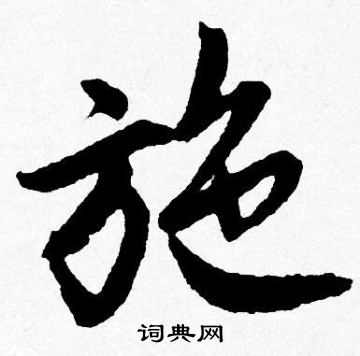 施
词典网